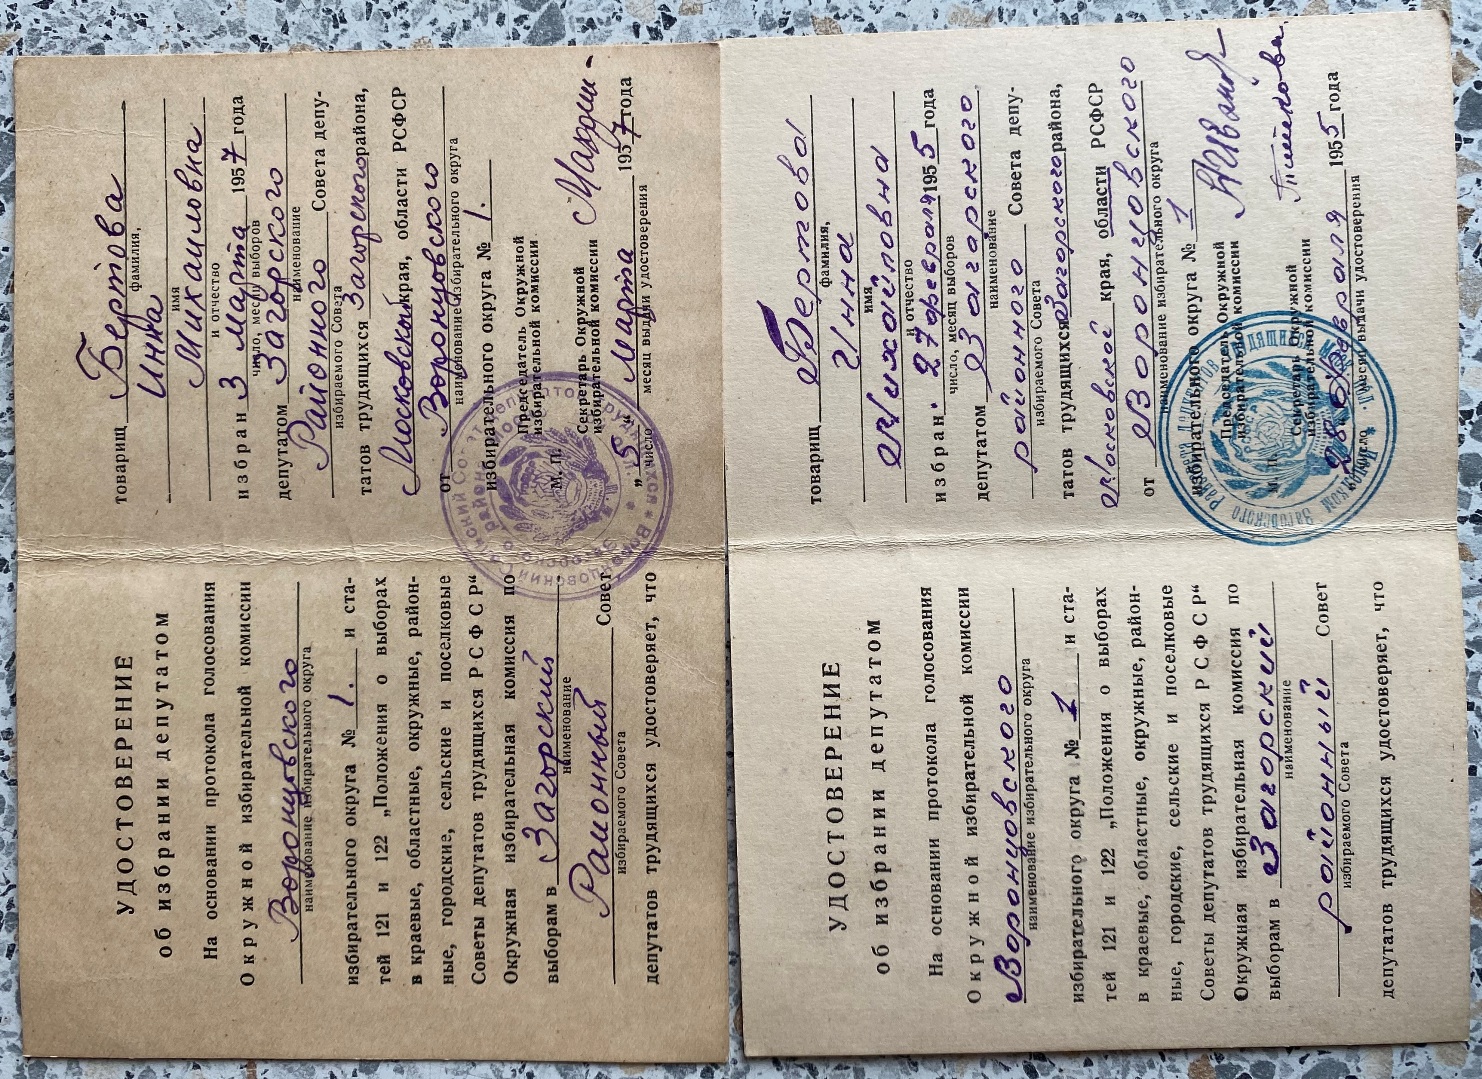 УДОСТОВЕРЕНИЕ
об избрании депутатом
На основании протокола голосования
Окружной избирательной комиссии
Воронцовского
наименование избирательного округа
избирательного округа № 1. и ста-
тей 121 и 122 „Положения о выборах
в краевые, областные, окружные, район-
ные, городские, сельские и поселковые
Советы депутатов трудящихся РСФСР“
Окружная избирательная комиссия по
выборам в Загорский
наименование
Районный Совет
избираемого Совета
депутатов трудящихся удостоверяет, что
товарищ Бертова
фамилия,
Инна
имя
Михайловна
и отчество
избран 3 марта 1957 года
число, месяц выборов
депутатом Загорского
наименование
Районного Совета депу-
избираемого Совета
татов трудящихся Загорского района,
Московской края, области РСФСР
от Воронцовского
наименование избирательного округа
избирательного округа № 1.
Председатель Окружной
избирательной комиссии
Секретарь Окружной
избирательной комиссии
М. П.
„5“ Марта 1957 года
число месяц выдачи удостоверения
УДОСТОВЕРЕНИЕ
об избрании депутатом
На основании протокола голосования
Окружной избирательной комиссии
Воронцовского
наименование избирательного округа
избирательного округа № 1 и ста-
тей 121 и 122 „Положения о выборах
в краевые, областные, окружные, район-
ные, городские, сельские и поселковые
Советы депутатов трудящихся РСФСР“
Окружная избирательная комиссия по
выборам в Загорский
наименование
районный Совет
избираемого Совета
депутатов трудящихся удостоверяет, что
товарищ Бертова
фамилия,
Инна
имя
Михайловна
и отчество
избран 27 февраля 1955 года
число, месяц выборов
депутатом Загорского
наименование
районного Совета депу-
избираемого Совета
татов трудящихся Загорского района,
Московской края, области РСФСР
от Воронцовского
наименование избирательного округа
избирательного округа № 1
Председатель Окружной
избирательной комиссии
Секретарь Окружной
избирательной комиссии
М. П.
„28“ февраля 1955 года
число месяц выдачи удостоверения